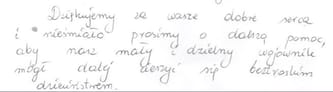 Dziękujemy za wasze dobre serca
i nieśmiało prosimy o dalszą pomoc,
aby nasz mały i dzielny wojownik
mógł dalej cieszyć się beztroskim
dzieciństwem.